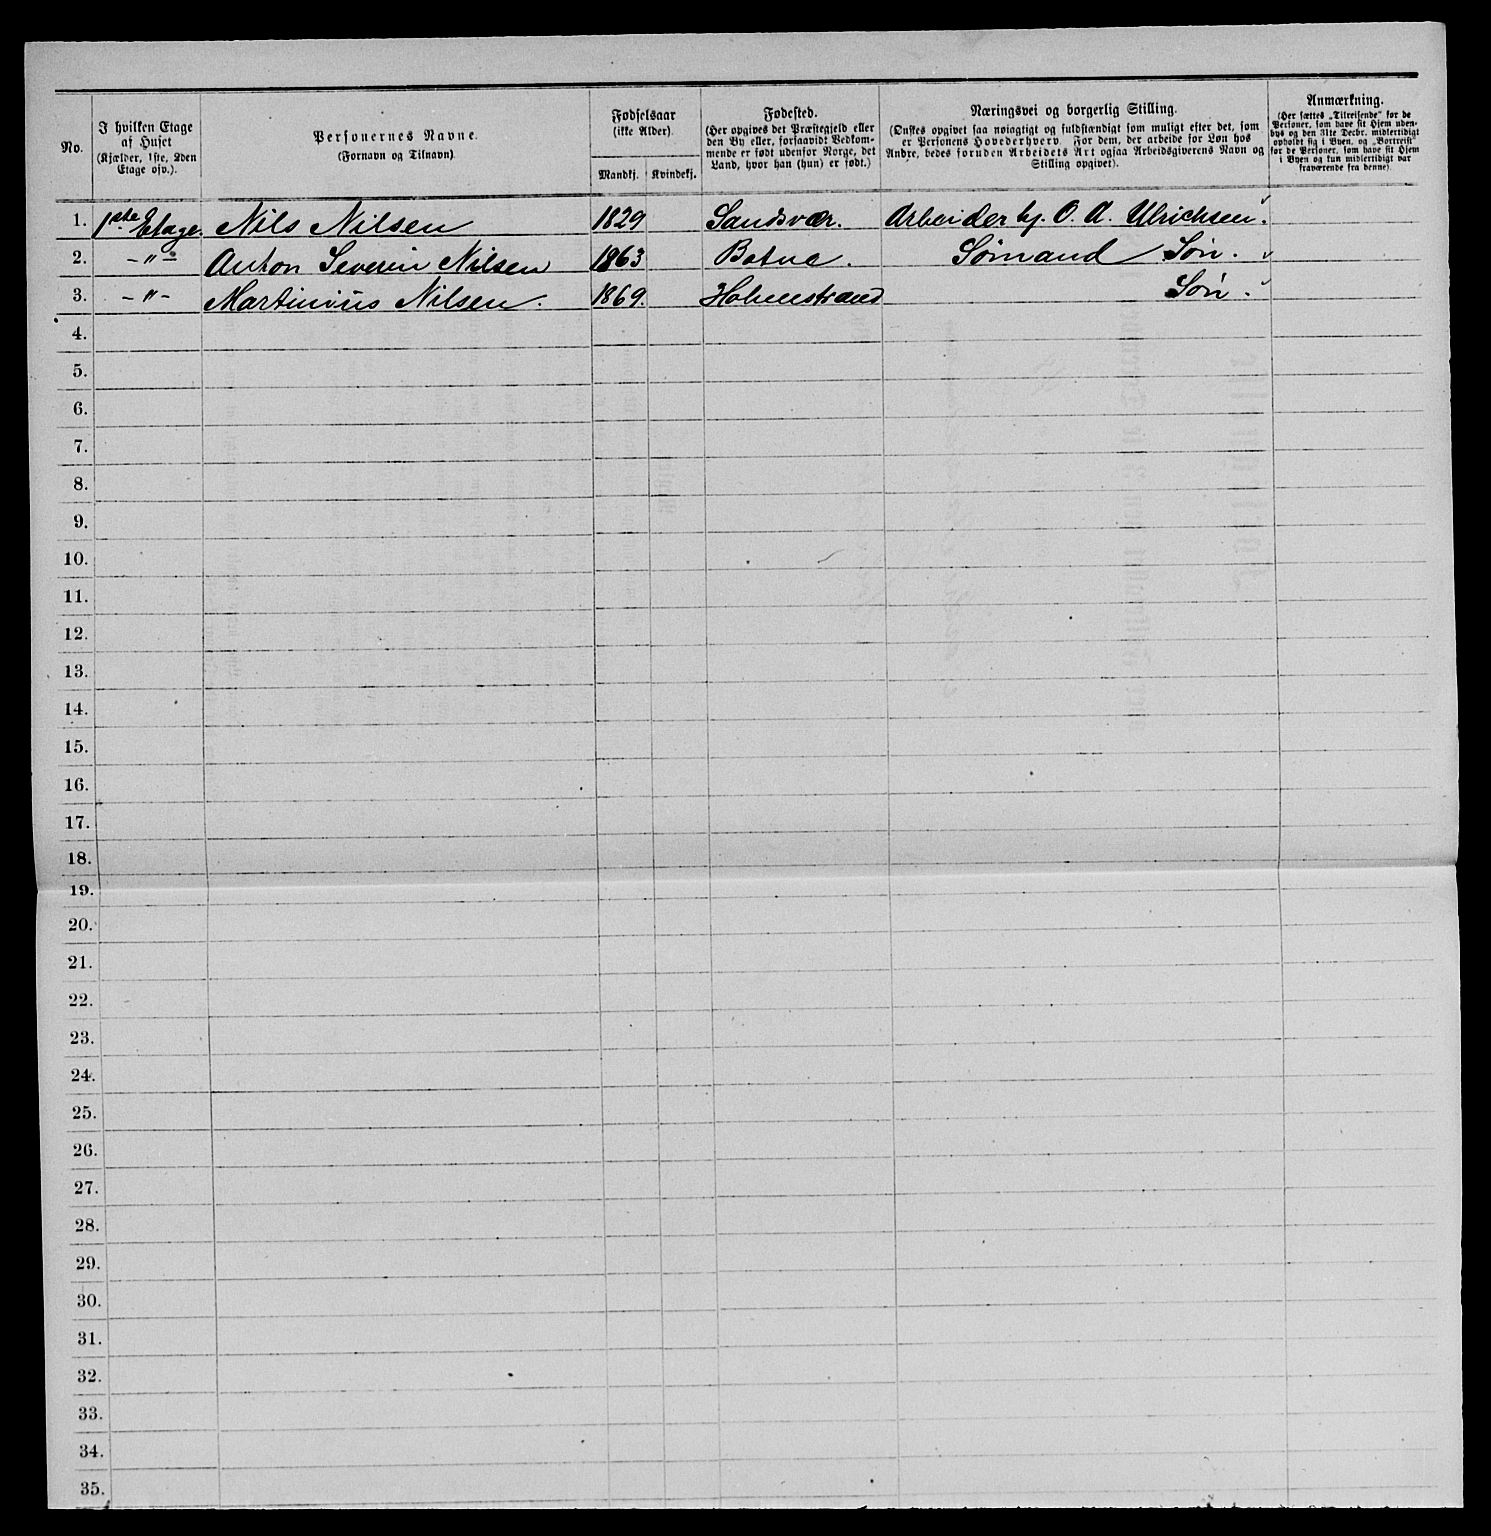 No.
I hvilken Etage
af Huset
(Kjælder, 1ste, 2den
Etage osv.).
Personernes Navne.
(Fornavn og Tilnavn)
Fødselsaar
(ikke Alder).
Mandkj. Kvindekj.
Fødested.
(Her opgives det Præstegjeld eller
den By eller, forsaavidt Vedkom-
mende er født udenfor Norge, det
Land, hvor han (hun) er født.)
Næringsvei og borgerlig Stilling.
(Ønskes opgivet saa nøiagtigt og fuldstændigt som muligt efter det, som
er Personens Hovederhverv. For dem, der arbeide for Løn hos
Andre, bedes foruden Arbeidets Art ogsaa Arbeidsgiverens Navn og
Stilling opgivet).
Anmærkning.
(Her sættes „Tilreisende" for de
Personer, som have sit Hjem uden-
bys og den 31te Decbr. midlertidigt
opholdt sig i Byen, og „Bortreist"
for de Personer, som have sit Hjem
i Byen og kun midlertidigt var
fraværende fra denne)
1. 1ste Etage. Nils Nilsen 1829 Sandsvær. Arbeider hj. O. A. Ulrichsen.
2. -"- Anton Severin Nilsen 1863 Botne. Sømand Søn.
3. -"- Martinius Nilsen. 1869. Holmestrand Søn.
4.
5.
6.
7.
8.
9.
10.
11.
12.
13.
14.
15.
16.
17.
18.
19.
20.
21.
22.
23.
24.
25.
26.
27.
28.
29.
30.
31.
32.
33.
34.
35.